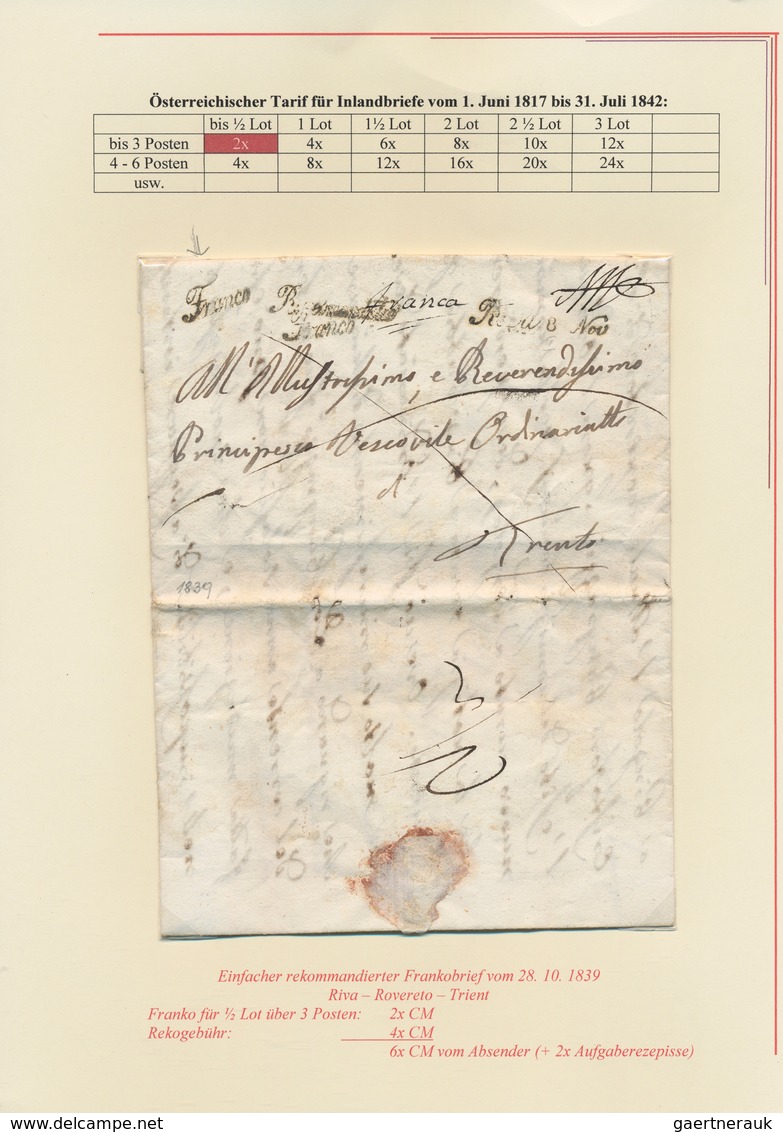 Österreichischer Tarif für Inlandbriefe vom 1. Juni 1817 bis 31. Juli 1842:
bis ½ Lot 1 Lot 1½ Lot 2 Lot 2 ½ Lot 3 Lot
bis 3 Posten 2x 4x 6x 8x 10x 12x
4 - 6 Posten 4x 8x 12x 16x 20x 24x
usw.
Franco Franco Franca Nov
All' Illustrissimo, e Reverendissimo
Principesco Vescovile Ordinariatto
di
Trento
1839
Einfacher rekommandierter Frankobrief vom 28. 10. 1839
Riva – Rovereto – Trient
Franko für ½ Lot über 3 Posten: 2x CM
Rekogebühr: 4x CM
6x CM vom Absender (+ 2x Aufgaberezepisse)
www.delcampe.net
gaertnerauk